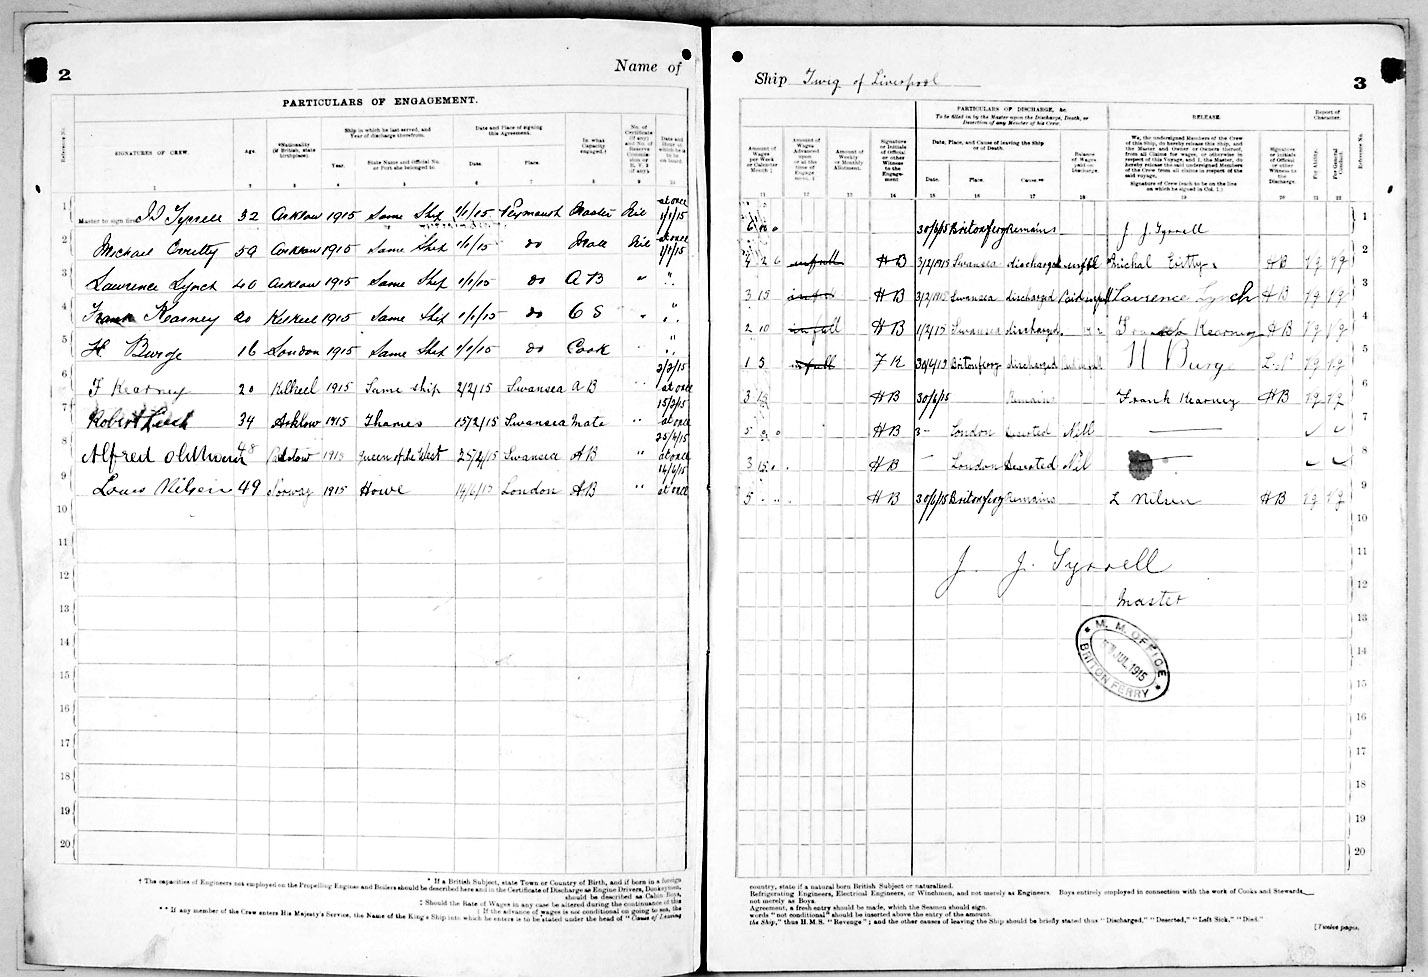 2
Name of
PARTICULARS OF ENGAGEMENT.
Reference No.
SIGNATURES OF CREW.
Age.
*Nationality (if British, state birthplace).
Ship in which he last served, and Year of discharge therefrom.
Year.
State Name and Official No. or Port she belonged to.
Date and Place of signing this Agreement.
Date.
Place.
In what Capacity engaged.†
No. of Certificate (if any) and No. of Reserve Commission or R. V. 2 (if any).
Date and Hour at which he is to be on board.
1 2 3 4 5 6 7 8 9 10
1 Master to sign first J J Tyrrell 32 Arklow 1915 Same Ship 1/1/15 Master Nil at once 1/1/15
2 Michael 59 Arklow 1915 Same Ship 1/1/15 do Mate Nil at once 1/1/15
3 Lawrence Lynch 40 Arklow 1915 Same Ship 1/1/15 do A B " "
4 Frank Kearney 20 1915 Same Ship 1/1/15 do O S " "
5 H Burge 16 London 1915 Same Ship 1/1/15 do Cook "
6 F Kearney 20 Kilkeel 1915 Same ship 2/2/15 Swansea A B " 2/2/15 at once
7 Robert 34 Arklow 1915 Thames 15/2/15 Swansea Mate " 15/2/15 at once
8 Alfred 48 1915 Queen of the West Swansea AB " at once
9 Louis Nilsen 49 Norway 1915 Howe 14/6/15 London AB " 14/6/15 at once
10
11
12
13
14
15
16
17
18
19
20
* If a British Subject, state Town or Country of Birth, and if born in a foreign
† The capacities of Engineers not employed on the Propelling Engines and Boilers should be described here and in the Certificate of Discharge as Engine Drivers, Donkeymen,
should be described as Cabin Boys,
‡ Should the Rate of Wages in any case be altered during the continuance of this
‖ If the advance of wages is not conditional on going to sea, the
** If any member of the Crew enters His Majesty's Service, the Name of the King's Ship into which he enters is to be stated under the head of "Cause of Leaving
Ship Twig of Liverpool
3
Amount of Wages per Week or Calendar Month ‡
Amount of Wages Advanced upon or at the time of Engagement. ‖
Amount of Weekly or Monthly Allotment.
Signature or Initials of Official or other Witness to the Engagement
PARTICULARS OF DISCHARGE, &c.
To be filled in by the Master upon the Discharge, Death, or Desertion of any Member of his Crew.
Date, Place, and Cause of leaving the Ship or of Death.
Date.
Place.
Cause**
Balance of Wages paid on Discharge.
RELEASE.
We, the undersigned Members of the Crew of this Ship, do hereby release this Ship, and the Master and Owner or Owners thereof, from all Claims for wages, or otherwise in respect of this Voyage; and I, the Master, do hereby release the undersigned Members of the Crew from all claims in respect of the said voyage.
Signature of Crew (each to be on the line on which he signed in Col. 1.)
Signature or Initials of Official or other Witness to the Discharge.
Report of Character.
For Ability.
For General Conduct.
Reference No.
11 12 13 14 15 16 17 18 19 20 21 22
30/6/15 Britonferry Remains J. J. Tyrrell 1
4 2 6 in full H B 3/2/1915 Swansea discharged H B Vg Vg 2
3 15 H B 3/2/1915 Swansea discharged Lawrence Lynch H B Vg Vg 3
2 10 in full H B 1/2/15 Swansea discharged Frank Kearney H B Vg Vg 4
1 5 in full F K 30/6/15 Britonferry discharged H Burge Vg Vg 5
3 H B 30/6/15 Remains Frank Kearney H B Vg Vg 6
5 H B London Deserted Nill 7
3 15 H B London Deserted Nil 8
5 H B 30/6/15 Britonferry Remains L Nilsen H B Vg Vg 9
10
J. J. Tyrrell 11
Master 12
13
M. M. OFFICE
JUL 1915
BRITON FERRY
14
15
16
17
18
19
20
country, state if a natural born British Subject or naturalised.
Refrigerating Engineers, Electrical Engineers, or Winchmen, and not merely as Engineers. Boys entirely employed in connection with the work of Cooks and Stewards
not merely as Boys.
Agreement, a fresh entry should be made, which the Seamen should sign.
words "not conditional" should be inserted above the entry of the amount.
the Ship," thus H.M.S. "Revenge"; and the other causes of leaving the Ship should be briefly stated thus "Discharged," "Deserted," "Left Sick," "Died."
[Twelve pages.